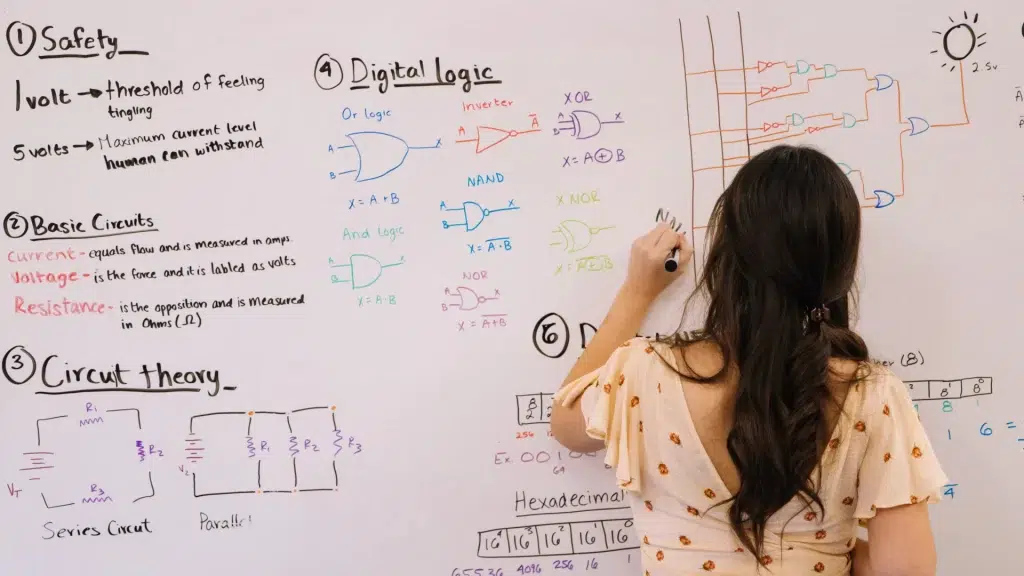 ① Safety
1 volt → threshold of feeling
tingling
5 volts → Maximum current level
human can withstand
② Basic Circuits
Current - equals flow and is measured in amps.
Voltage - is the force and it is labled as volts
Resistance - is the opposition and is measured
in Ohms (Ω)
③ Circuit theory
R₁
R₂
R₃
V_T
Series Circut
R₁
R₂
R₃
Parallel
④ Digital logic
Or logic
A
B
X
X = A + B
Inverter
A
A̅
XOR
A
B
X
X = A ⊕ B
NAND
A
B
X
X = \overline{A · B}
X NOR
And logic
A
B
X
X = A · B
NOR
A
B
X
X = \overline{A+B}
2.5v
(8)
8¹
8⁰
8
1
1
6 =
4
256
Ex. 001
64
Hexadecimal
16⁴
16³
16²
16¹
16⁰
65536
4096
256
16
1